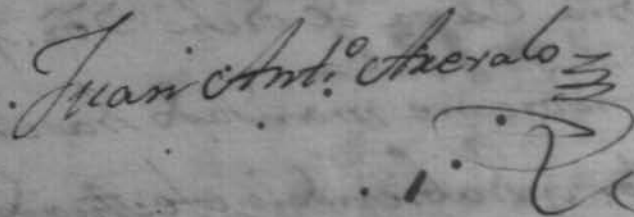 Juan Ant.º Axevalo